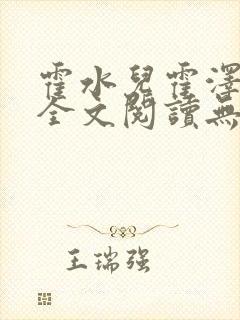 霍水兒霍澤
全文閱讀無
王瑞强